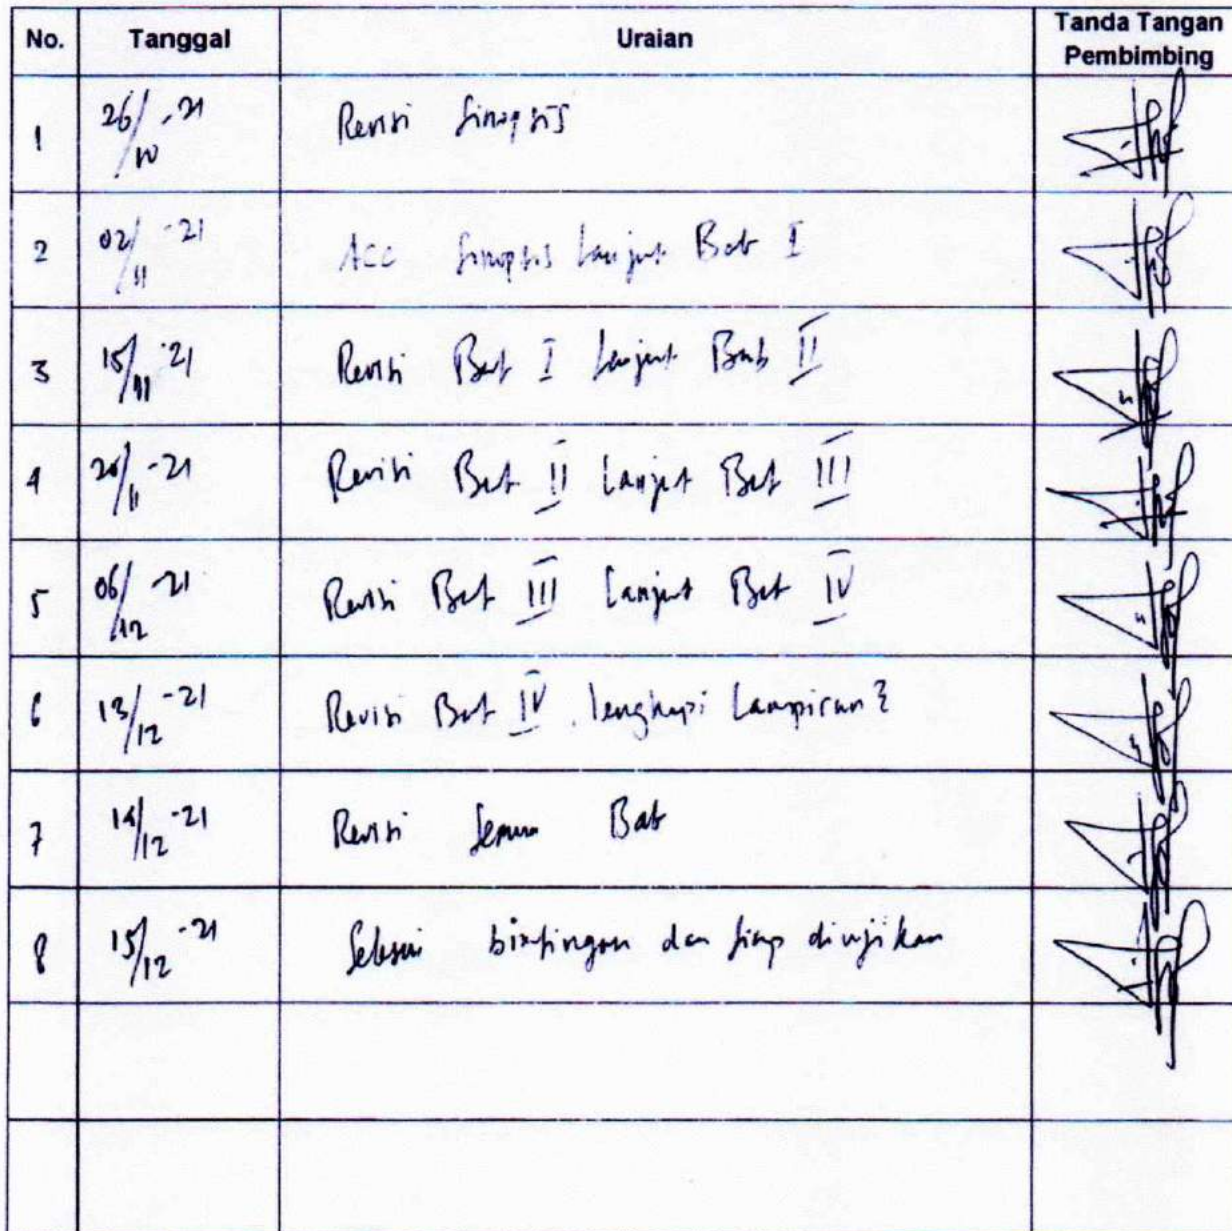 No. Tanggal Uraian Tanda Tangan Pembimbing
1 26/10 -21 Revisi Sinopsis
2 02/11 -21 ACC Sinopsis Lanjut Bab I
3 15/11 -21 Revisi Bab I Lanjut Bab II
4 /11 -21 Revisi Bab II Lanjut Bab III
5 06/12 -21 Revisi Bab III Lanjut Bab IV
6 13/12 -21 Revisi Bab IV, lengkapi Lampiran2
7 14/12 -21 Revisi Semua Bab
8 15/12 -21 Selesai bimbingan dan siap diujikan